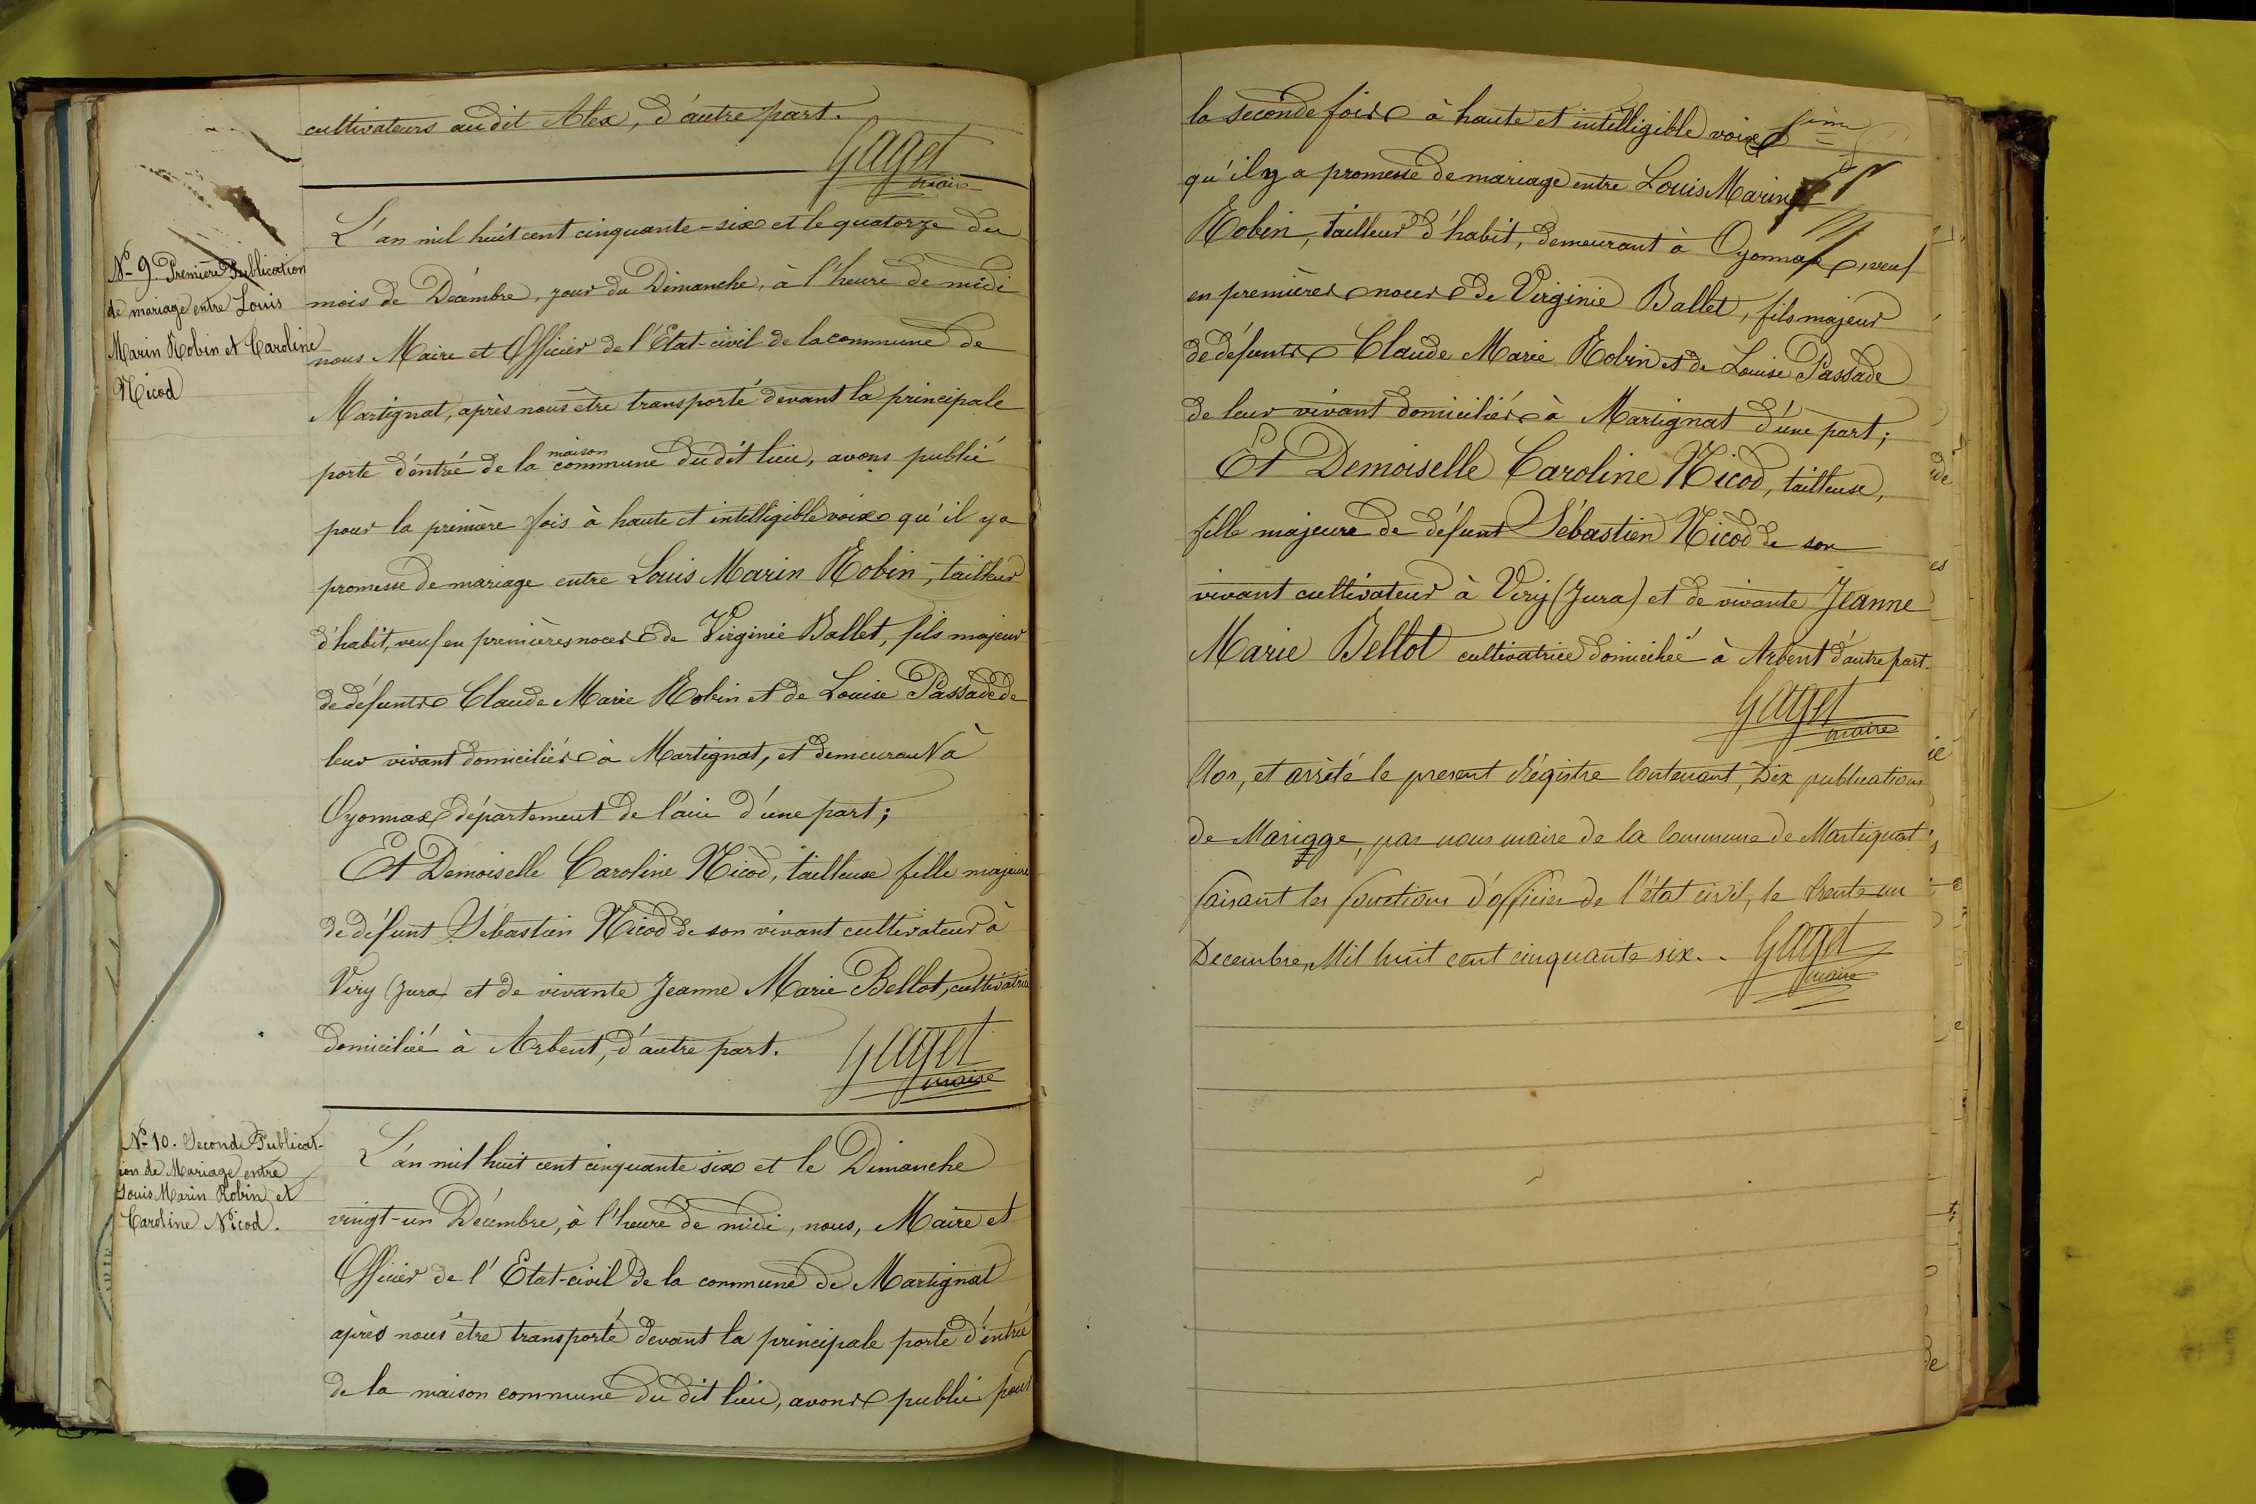 cultivateurs audit Alex, d'autre part.
Gaget
maire
N° 9. Première Publication
de mariage entre Louis
Marin Robin et Caroline
Nicod
L'an mil huit cent cinquante-six et le quatorze du
mois de Décembre, jour du Dimanche, à l'heure de midi
nous Maire et Officier de l'Etat-civil de la commune de
Martignat, après nous être transporté devant la principale
porte d'entrée de la maison commune du dit lieu, avons publié
pour la première fois à haute et intelligible voix qu'il y a
promesse de mariage entre Louis Marin Robin, tailleur
d'habit, veuf en premières noces de Virginie Ballet, fils majeur
de défunts Claude Marie Robin et de Louise Passade de
leur vivant domiciliés à Martignat, et demeurant à
Oyonnax département de l'ain d'une part;
Et Demoiselle Caroline Nicod, tailleuse fille majeure
de défunt Sébastien Nicod de son vivant cultivateur à
Viry (Jura) et de vivante Jeanne Marie Bellot, cultivatrice
domiciliée à Arbent, d'autre part.
Gaget
maire
N° 10. Seconde Publicat-
ion de Mariage entre
Louis Marin Robin et
Caroline Nicod.
L'an mil huit cent cinquante six et le Dimanche
vingt-un Décembre, à l'heure de midi, nous, Maire et
Officier de l'Etat-civil de la commune de Martignat
après nous être transporté devant la principale porte d'entrée
de la maison commune du dit lieu, avons publié pour
la seconde fois à haute et intelligible voix
qu'il y a promesse de mariage entre Louis Marin
Robin, tailleur d'habit, demeurant à Oyonnax, veuf
en premières noces de Virginie Ballet, fils majeur
de défunts Claude Marie Robin et de Louise Passade
de leur vivant domiciliés à Martignat d'une part;
Et Demoiselle Caroline Nicod, tailleuse,
fille majeure de défunt Sébastien Nicod de son
vivant cultivateur à Viry (Jura) et de vivante Jeanne
Marie Bellot cultivatrice domiciliée à Arbent d'autre part.
Gaget
maire
Clos, et arrêté le present Régistre Contenant, Dix publications
de Mariage, par nous maire de la Commune de Martignat
faisant les fonctions d'officier de l'état civil, le trente un
Decembre, Mil huit cent cinquante six. Gaget
maire